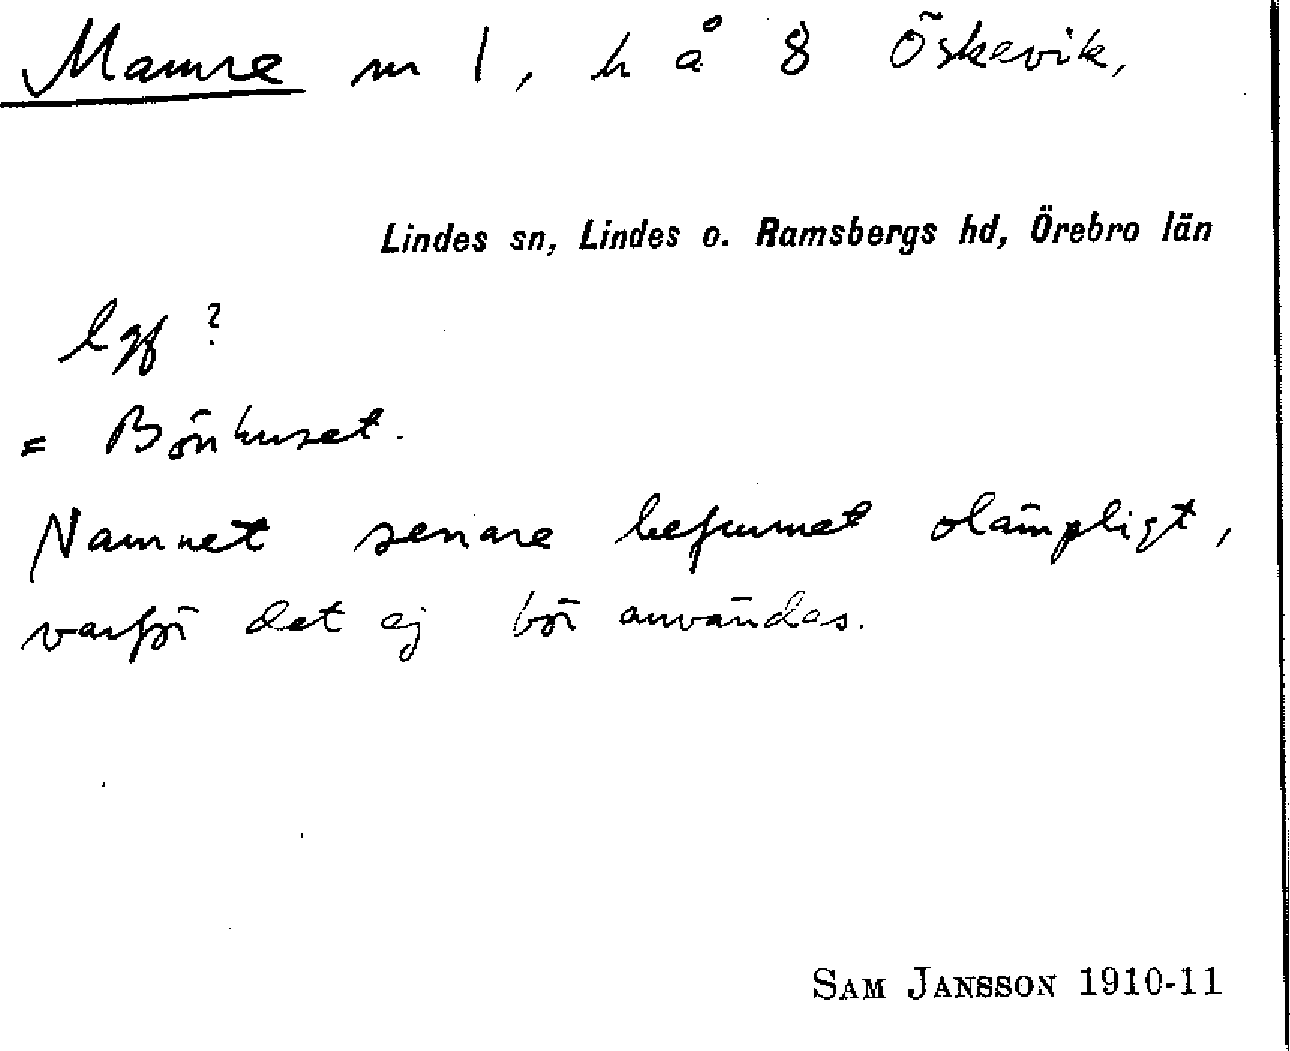 Mamre nr 1, h å 8 Öskevik,
Lindes sn, Lindes o. Ramsbergs hd, Örebro län
lgf ?
= Bönhuset.
Namnet senare befunnet olämpligt,
varför det ej bör användas.
SAM JANSSON 1910-11